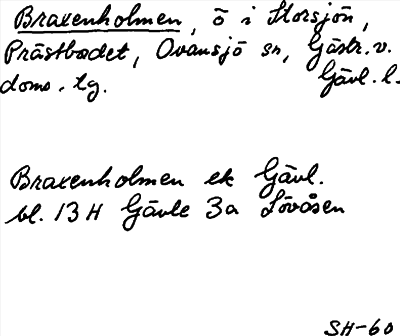 Braxenholmen, ö i Storsjön,
Prästbodet, Ovansjö sn, Gästr. v.
doms. tg. Gävl. l.
Braxenholmen ek Gävl.
bl. 13 H Gävle 3a Lövåsen
SH-60